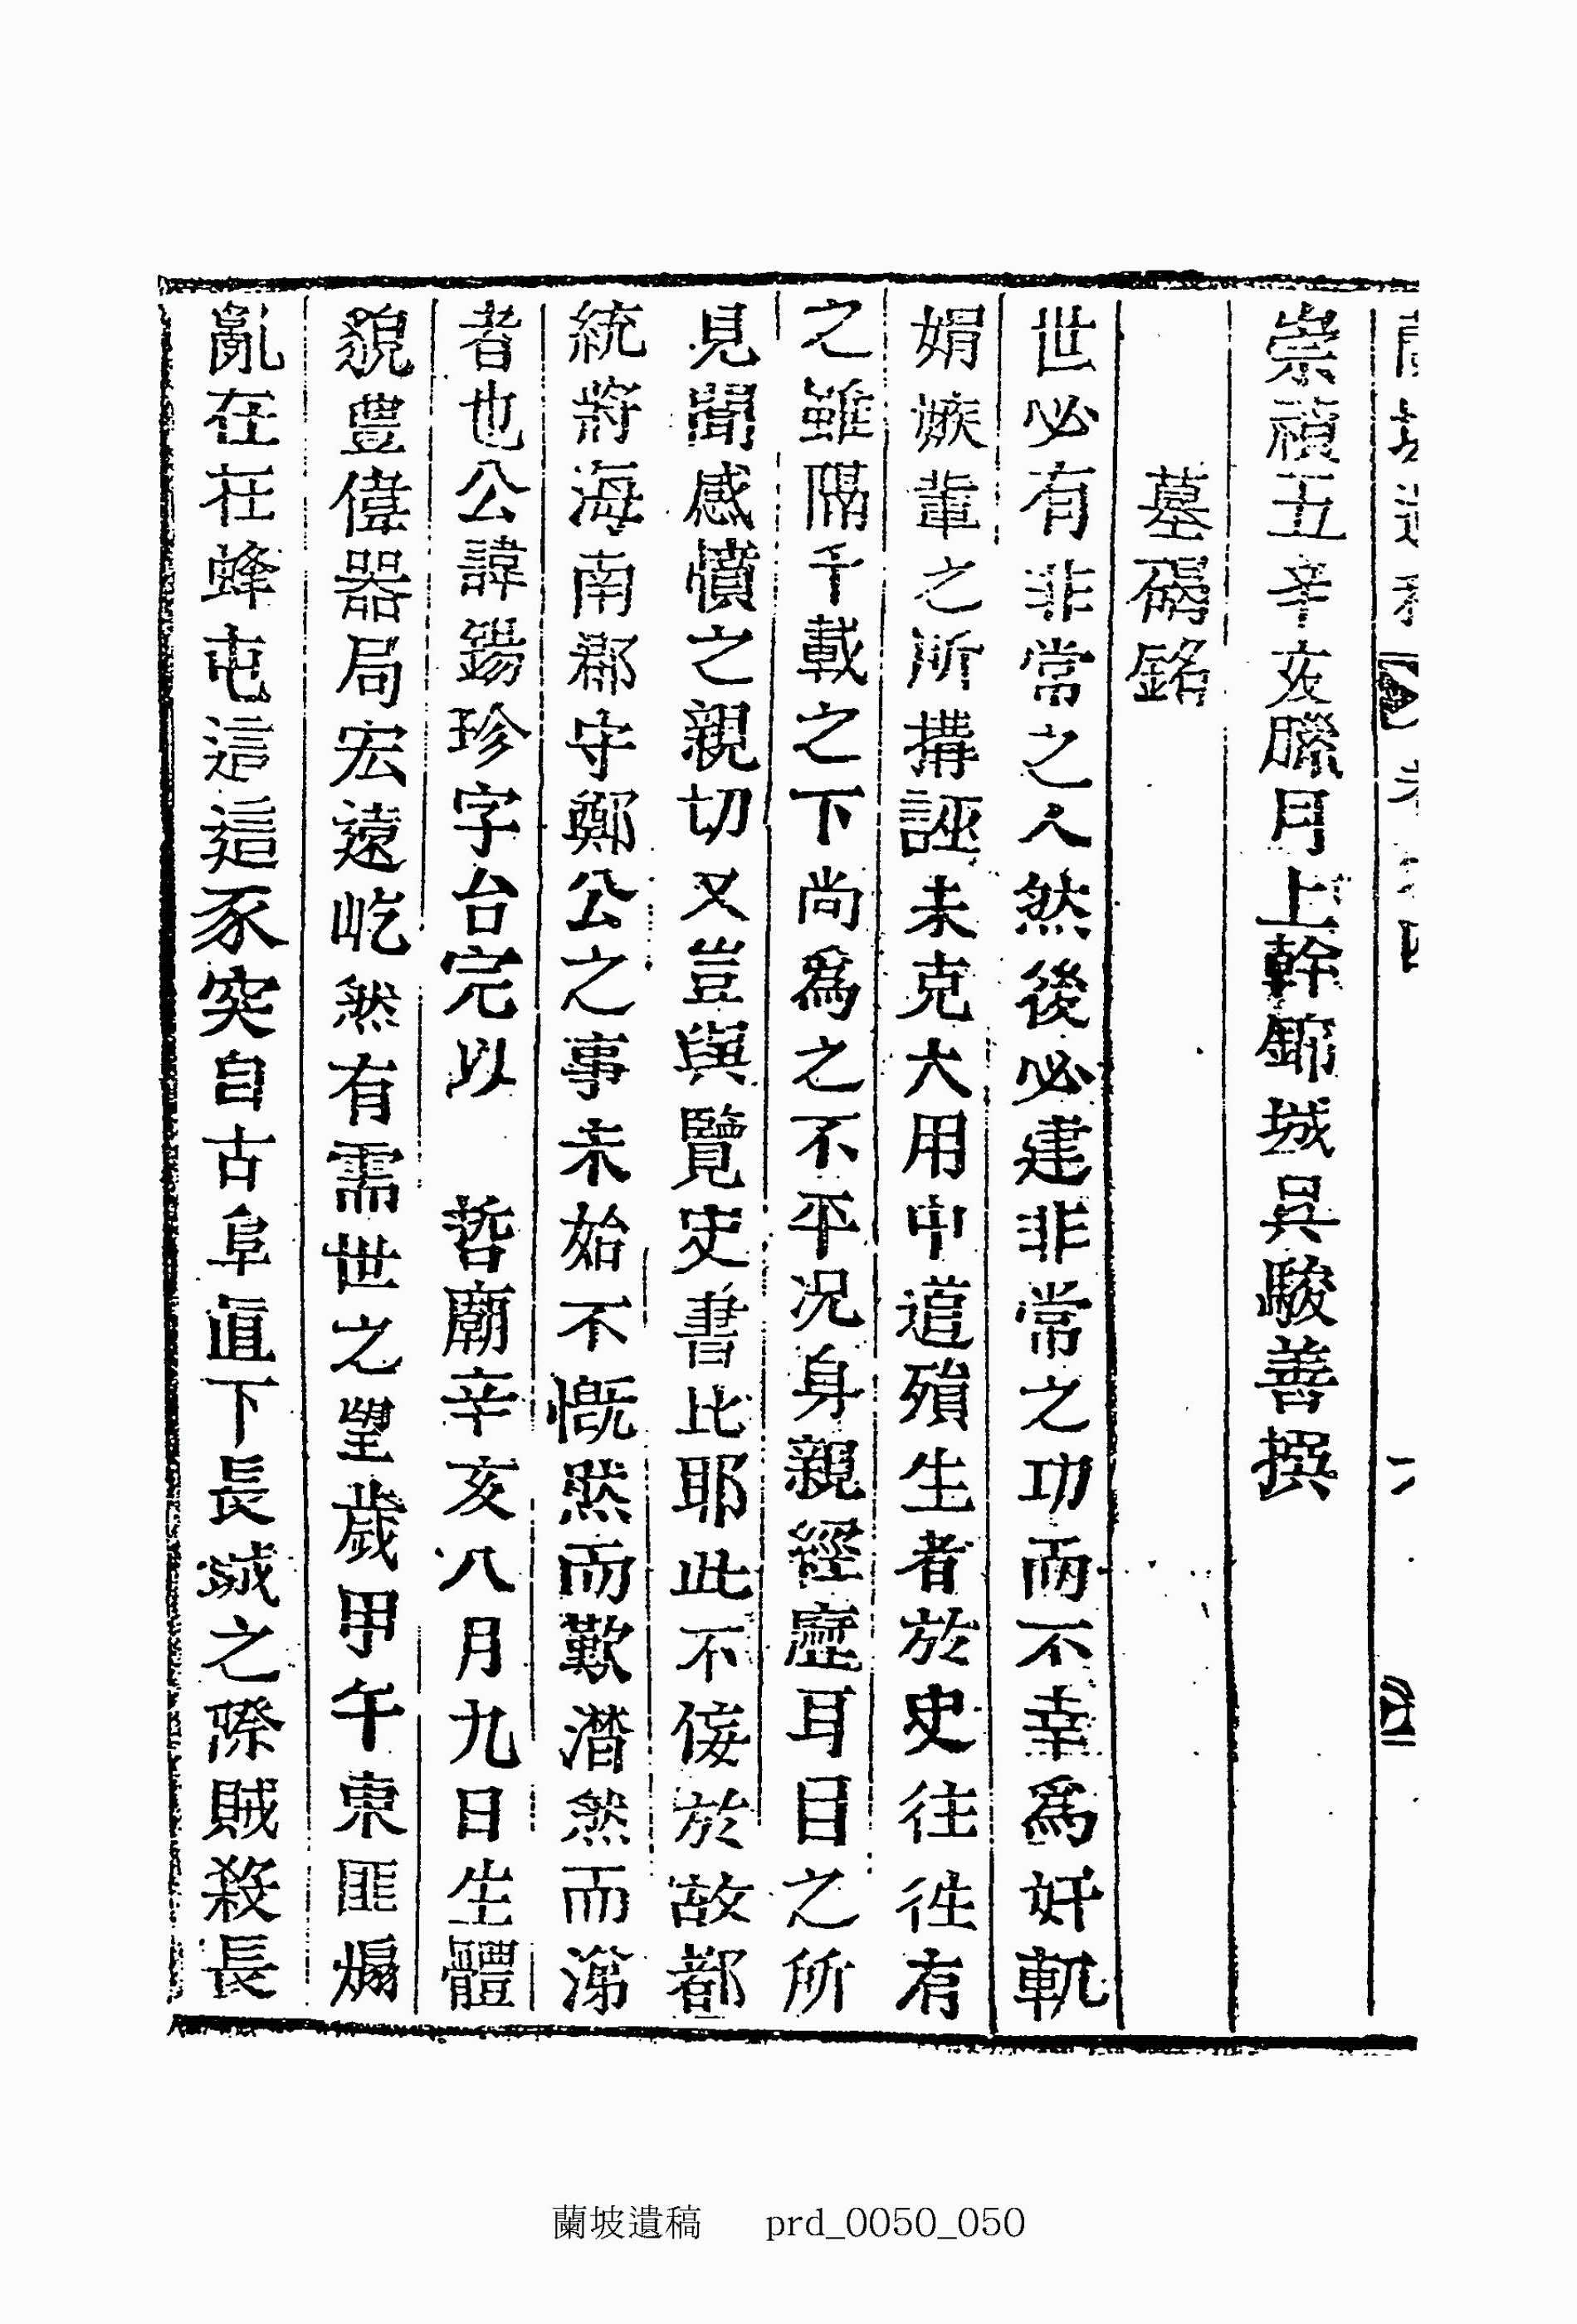 崇禎五辛亥臘月上幹錦城吳駿善撰
墓碣銘
世必有非常之人然後必建非常之功而不幸爲奸軏
娟嫉輩之所搆誣未克大用中道殞生者於史往往有
之雖隔千載之下尚爲之不平况身親經歷耳目之所
見聞感憤之親切又豈與覽史書比耶此不佞於故都
統將海南郡守鄭公之事未始不慨然而歎潸然而涕
者也公諱錫珍字台完以 哲廟辛亥八月九日生體
貌豊偉器局宏遠屹然有需世之望歲甲午東匪煽
亂在在蜂屯這這豕突自古阜直下長城之際賊殺長
蘭坡遺稿 prd_0050_050